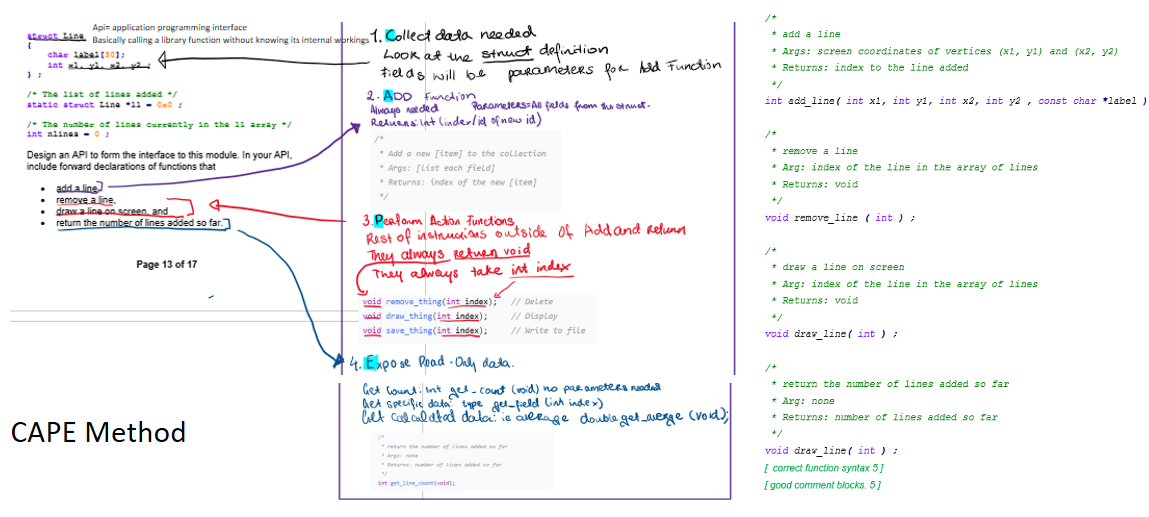 Api= application programming interface
Basically calling a library function without knowing its internal workings
struct Line
{
char label[50];
int x1, y1, x2, y2 ;
} ;
/* The list of lines added */
static struct Line *ll = 0x0 ;
/* The number of lines currently in the ll array */
int nlines = 0 ;
Design an API to form the interface to this module. In your API,
include forward declarations of functions that
• add a line,
• remove a line,
• draw a line on screen, and
• return the number of lines added so far.
Page 13 of 17
CAPE Method
1. Collect data needed
Look at the struct definition
fields will be parameters for Add Function
2. ADD function
Always needed Parameters=All fields from the struct.
Returns: int (index/id of new id)
/*
* Add a new [item] to the collection
* Args: [list each field]
* Returns: index of the new [item]
*/
3. Perform Action Functions
Rest of instructions outside of Add and Return
They always return void
They always take int index
void remove_thing(int index); // Delete
void draw_thing(int index); // Display
void save_thing(int index); // Write to file
4. Expose Read-Only data.
Get Count: int get_count (void) no parameters needed
Get specific data: type get_field (int index)
Get calculated data: ie average double get_averge (void);
/*
* return the number of lines added so far
* Args: none
* Returns: number of lines added so far
*/
int get_line_count(void);
/*
* add a line
* Args: screen coordinates of vertices (x1, y1) and (x2, y2)
* Returns: index to the line added
*/
int add_line( int x1, int y1, int x2, int y2 , const char *label )
/*
* remove a line
* Arg: index of the line in the array of lines
* Returns: void
*/
void remove_line ( int ) ;
/*
* draw a line on screen
* Arg: index of the line in the array of lines
* Returns: void
*/
void draw_line( int ) ;
/*
* return the number of lines added so far
* Arg: none
* Returns: number of lines added so far
*/
void draw_line( int ) ;
[ correct function syntax 5 ]
[ good comment blocks. 5 ]